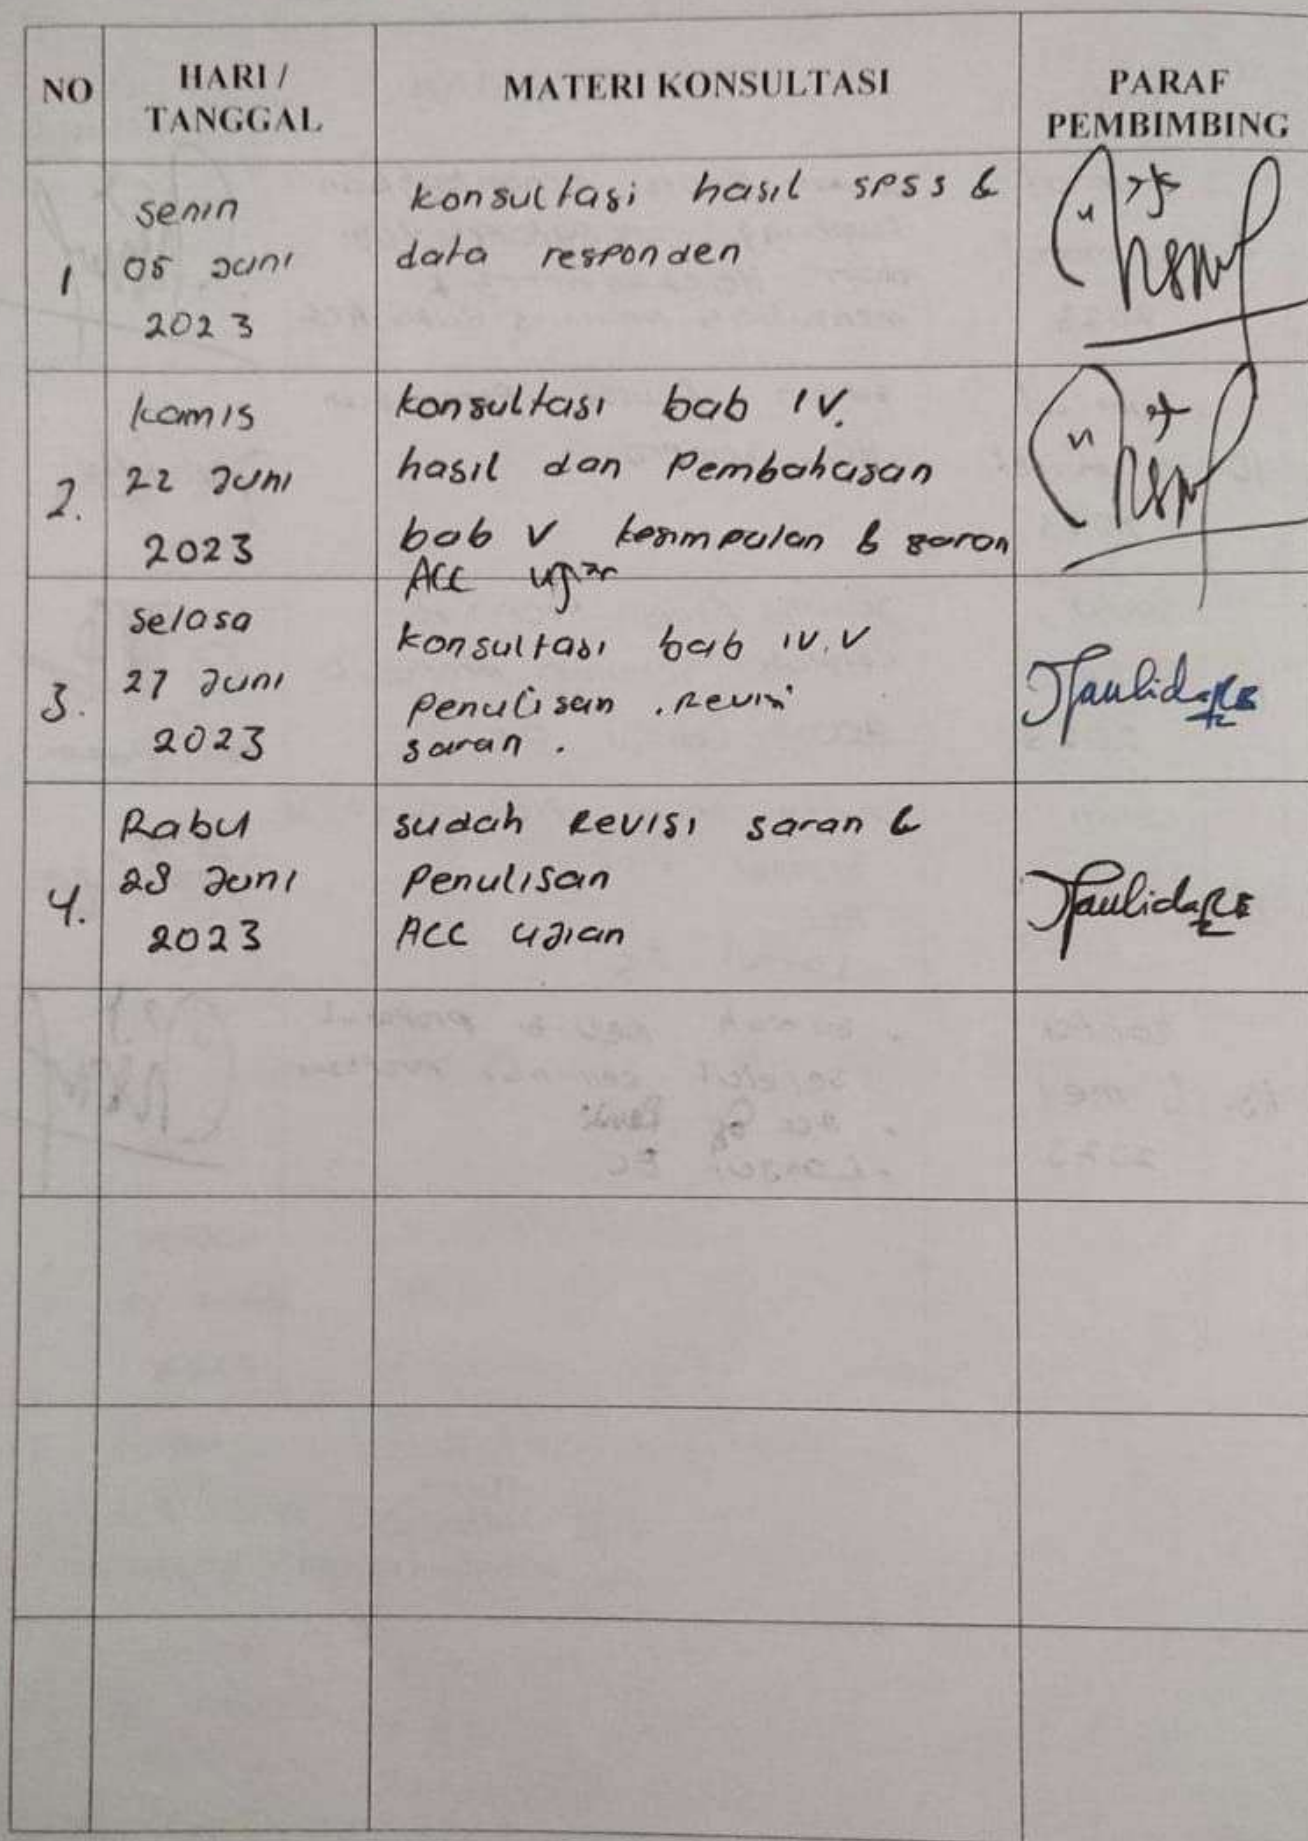 NO
HARI /
TANGGAL
MATERI KONSULTASI
PARAF
PEMBIMBING
1
senin
05 Juni
2023
konsultasi hasil SPSS &
data responden
2.
kamis
22 Juni
2023
konsultasi bab IV.
hasil dan Pembahasan
bab V kesimpulan & saran
ACC ujian
3.
Selasa
27 Juni
2023
konsultasi bab IV. V
Penulisan . Revisi
saran .
4.
Rabu
28 Juni
2023
sudah Revisi saran &
Penulisan
ACC ujian